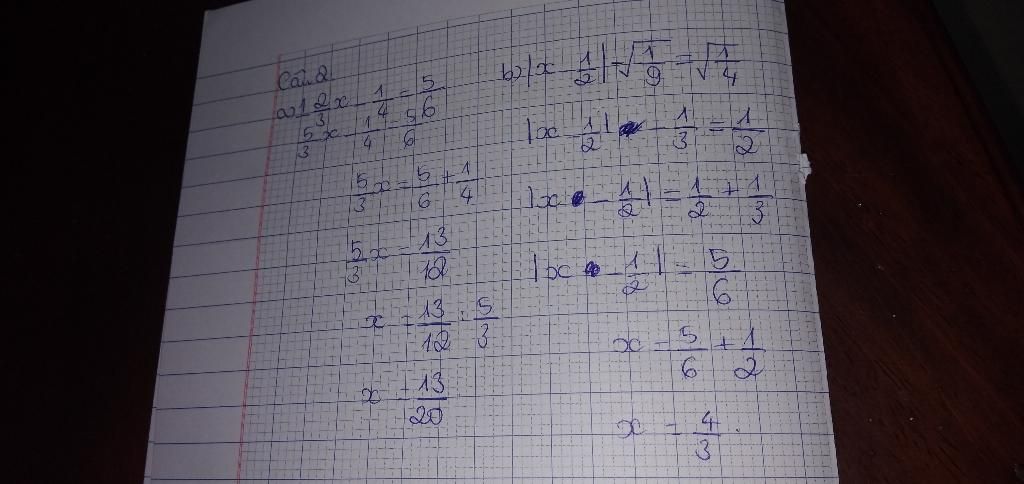 Câu 2
a) 1 2/3 x - 1/4 = 5/6
5/3 x - 1/4 = 5/6
5/3 x = 5/6 + 1/4
5/3 x = 13/12
x = 13/12 : 5/3
x = 13/20
b) |x - 1/2| - √1/9 = √1/4
|x - 1/2| - 1/3 = 1/2
|x - 1/2| = 1/2 + 1/3
|x - 1/2| = 5/6
x = 5/6 + 1/2
x = 4/3.